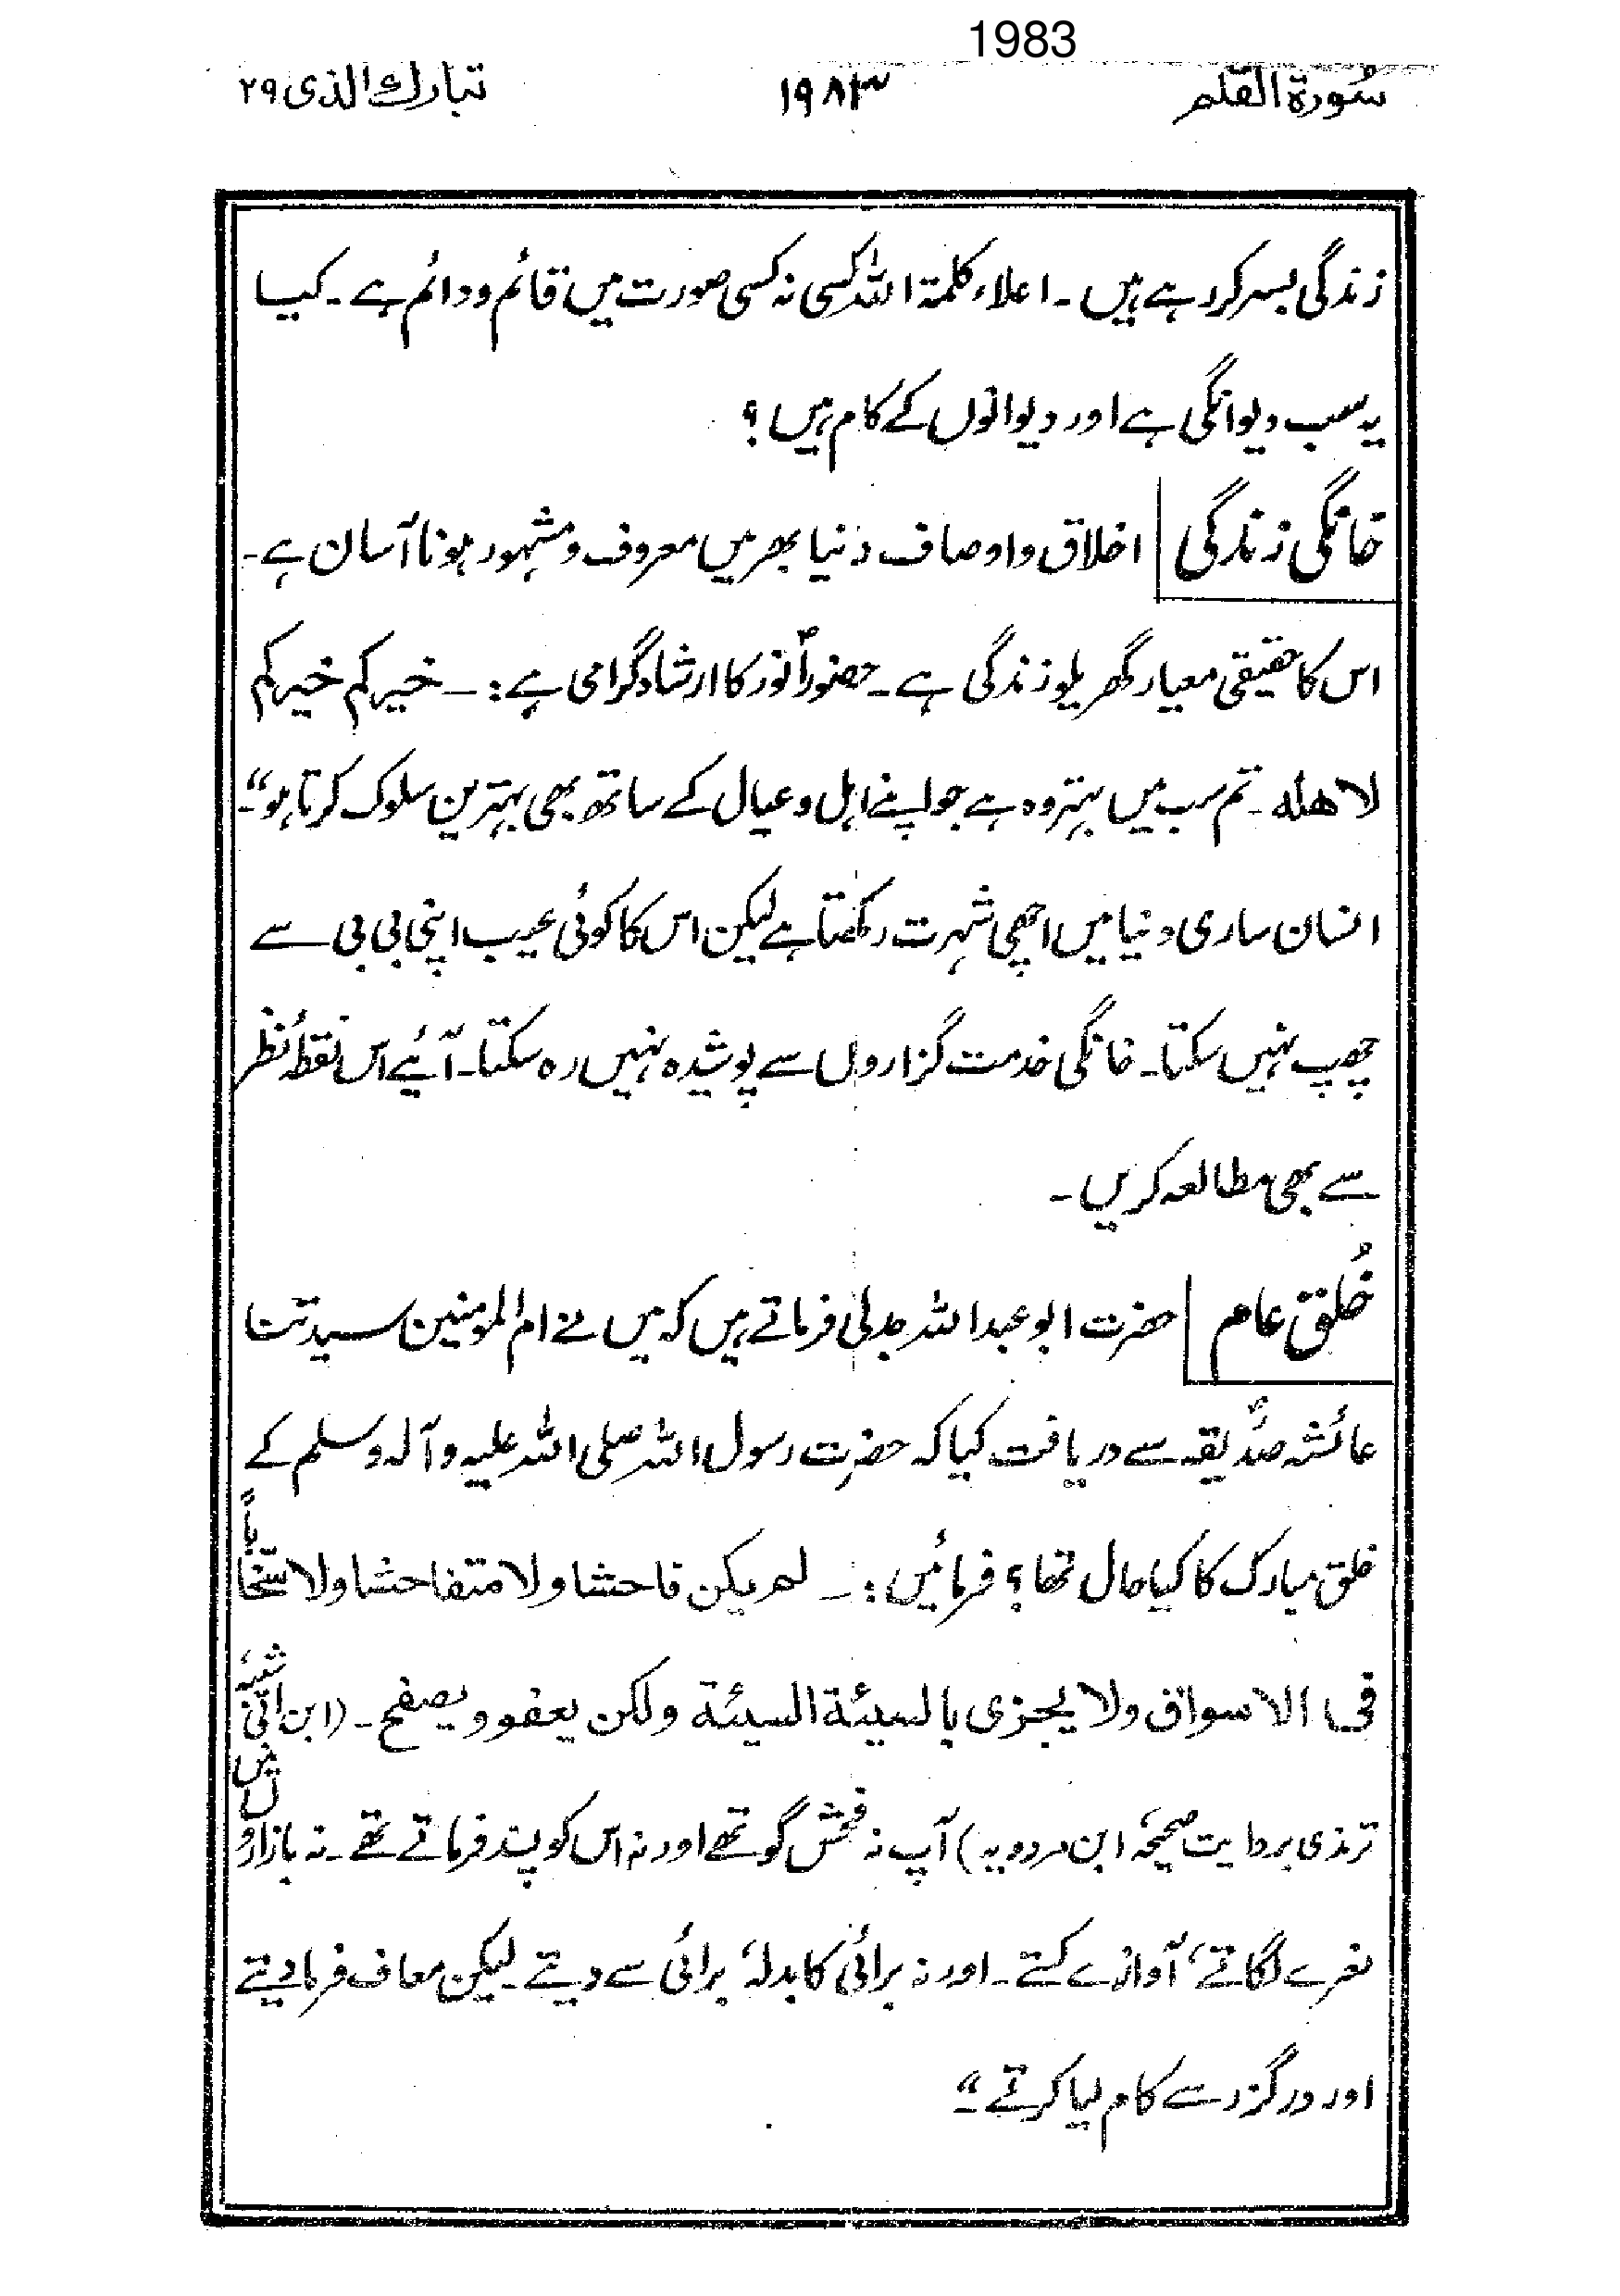 1983
سُورة القلم ١٩٨٣ تبارك الذی ٢٩
زندگی بسر کر رہے ہیں ۔ اعلاء کلمۃ اللہ کسی نہ کسی صورت میں قائم و دائم ہے ۔ کیا
یہ سب دیوانگی ہے اور دیوانوں کے کام ہیں ؟
خانگی زندگی اخلاق و اوصاف دنیا بھر میں معروف و مشہور ہونا آسان ہے ۔
اس کا حقیقی معیار گھریلو زندگی ہے ۔ حضورؐ انور کا ارشاد گرامی ہے :۔ خیرکم خیرکم
لاھلہ ۔ تم سب میں بہتر وہ ہے جو اپنے اہل و عیال کے ساتھ بھی بہترین سلوک کرتا ہو“۔
انسان ساری دنیا میں اچھی شہرت رکھتا ہے لیکن اس کا کوئی عیب اپنی بی بی سے
چھپ نہیں سکتا ۔ خانگی خدمت گزاروں سے پوشیدہ نہیں رہ سکتا ۔ آئیے اس نقطۂ نظر
سے بھی مطالعہ کریں ۔
خُلق عام حضرت ابو عبداللہ جدلی فرماتے ہیں کہ میں نے ام المومنین سیدتنا
عائشہ صدّیقہؓ سے دریافت کیا کہ حضرت رسول اللہ صلی اللہ علیہ وآلہ وسلم کے
خلق مبارک کا کیا حال تھا ؟ فرمائیں :۔ لم یکن فاحشا ولا متفاحشا ولا سخّاباً
فی الاسواق ولا یجزی بالسیئة السیئة ولکن یعفو ویصفح ۔ (ابن ابی شیبہ،
ترمذی بروایت صحیحہ، ابن مردویہ) آپ نہ فحش گو تھے اور نہ اس کو پسند فرماتے تھے ۔ نہ بازاروں میں
نعرے لگاتے، آوازے کستے ۔ اور نہ برائی کا بدلہ، برائی سے دیتے ۔ لیکن معاف فرما دیتے
اور درگزر سے کام لیا کرتے“۔